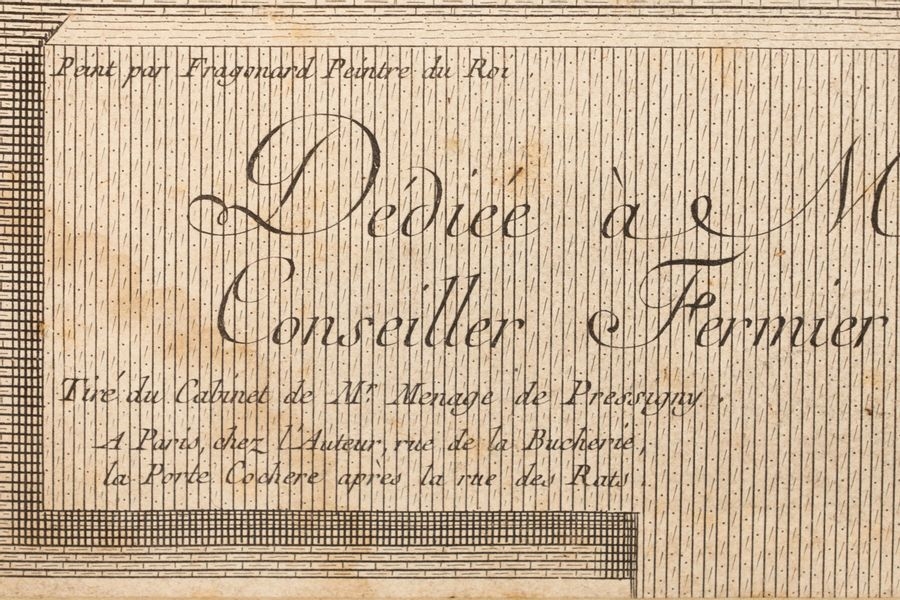 Peint par Fragonard Peintre du Roi.
Dédiéé à M
Conseiller Fermier
Tiré du Cabinet de Mr. Menage de Pressigny.
A Paris, chez l'Auteur, rue de la Bucherie,
la Porte Cochere apres la rue des Rats.